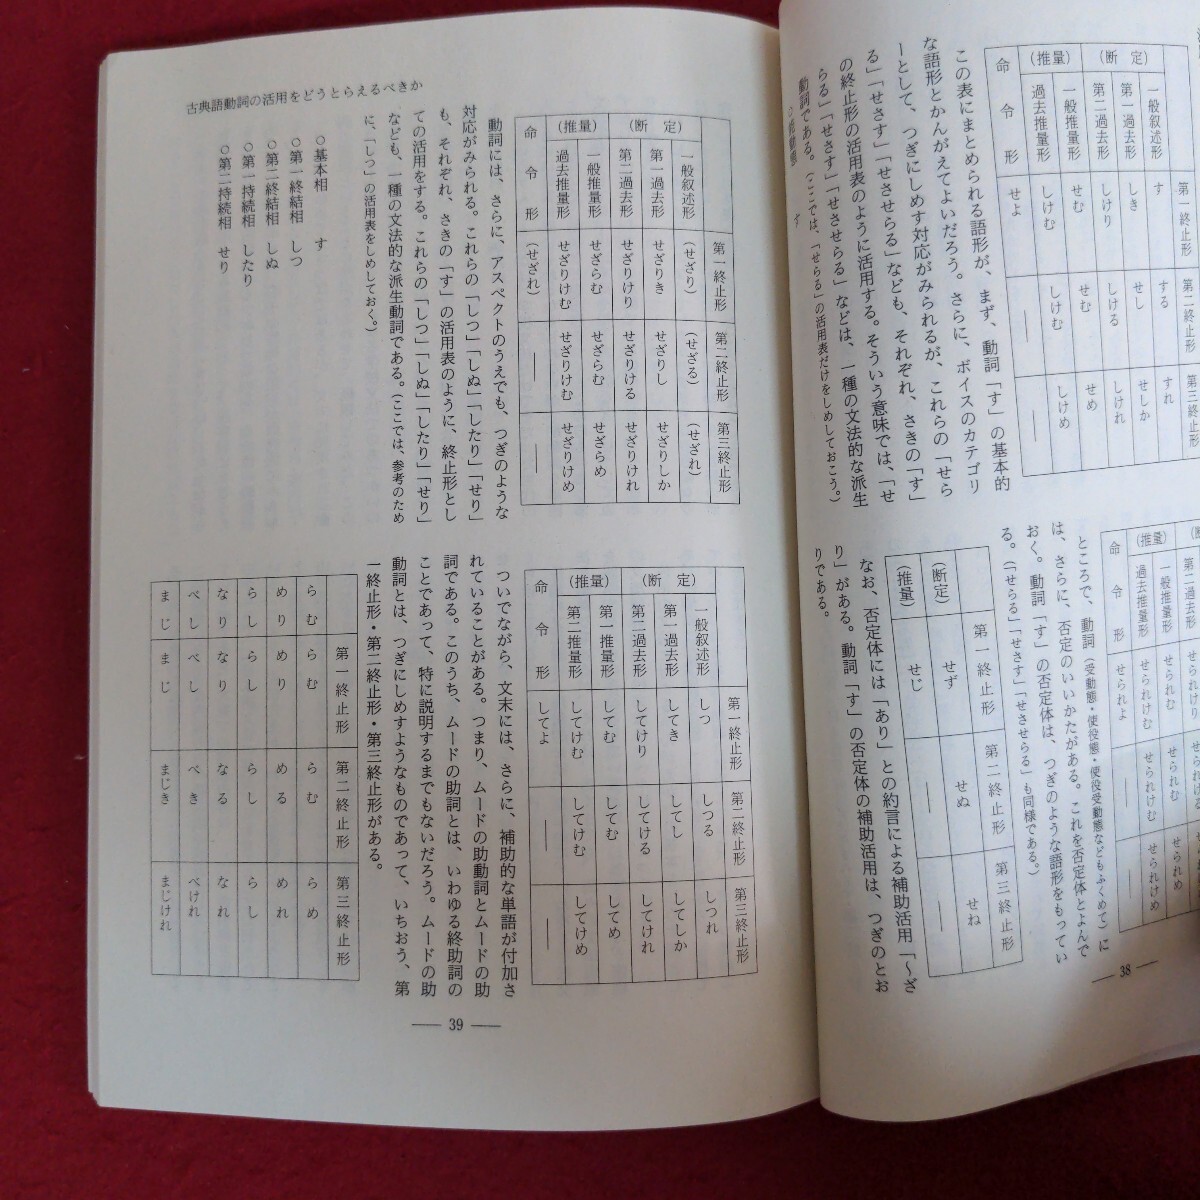 命令形
(推量)
(断定)
過去推量形
一般推量形
第二過去形
第一過去形
一般叙述形
第一終止形
せよ
しけむ
せむ
しけり
しき
す
第二終止形
――
しけむ
せむ
しける
せし
する
第三終止形
――
しけめ
せめ
しけれ
せしか
すれ
この表にまとめられる語形が、まず、動詞「す」の基本的
な語形とかんがえてよいだろう。さらに、ボイスのカテゴリ
ーとして、つぎにしめす対応がみられるが、これらの「せら
る」「せさす」「せさせらる」なども、それぞれ、さきの「す」
の終止形の活用表のように活用する。そういう意味では、「せ
らる」「せさす」「せさせらる」などは、一種の文法的な派生
動詞である。(ここでは、「せらる」の活用表だけをしめしておこう。)
す
命令形
(推量)
過去推量形
一般推量形
第二過去形
せられよ
せられけむ
せられむ
せられけり
――
せられけむ
せられむ
――
せられけめ
せられめ
ところで、動詞(受動態・使役態・使役受動態などもふくめて)に
は、さらに、否定のいいかたがある。これを否定体とよんで
おく。動詞「す」の否定体は、つぎのような語形をもってい
る。(「せらる」「せさす」「せさせらる」も同様である。)
(推量)
(断定)
第一終止形
せじ
せず
第二終止形
――
せぬ
第三終止形
――
せね
なお、否定体には「あり」との約言による補助活用「〜ざ
り」がある。動詞「す」の否定体の補助活用は、つぎのとお
りである。
― 38 ―
古典語動詞の活用をどうとらえるべきか
命令形
(推量)
(断定)
過去推量形
一般推量形
第二過去形
第一過去形
一般叙述形
第一終止形
(せざれ)
せざりけむ
せざらむ
せざりけり
せざりき
(せざり)
第二終止形
――
せざりけむ
せざらむ
せざりける
せざりし
(せざる)
第三終止形
――
せざりけめ
せざらめ
せざりけれ
せざりしか
(せざれ)
動詞には、さらに、アスペクトのうえでも、つぎのような
対応がみられる。これらの「しつ」「しぬ」「したり」「せり」
も、それぞれ、さきの「す」の活用表のように、終止形とし
ての活用をする。これらの「しつ」「しぬ」「したり」「せり」
なども、一種の文法的な派生動詞である。(ここでは、参考のため
に、「しつ」の活用表をしめしておく。)
○基本相 す
○第一終結相 しつ
○第二終結相 しぬ
○第一持続相 したり
○第二持続相 せり
命令形
(推量)
(断定)
第二推量形
第一推量形
第二過去形
第一過去形
一般叙述形
第一終止形
してよ
してけむ
してむ
してけり
してき
しつ
第二終止形
――
してけむ
してむ
してける
してし
しつる
第三終止形
――
してけめ
してめ
してけれ
してしか
しつれ
ついでながら、文末には、さらに、補助的な単語が付加さ
れていることがある。つまり、ムードの助動詞とムードの助
詞である。このうち、ムードの助詞とは、いわゆる終助詞の
ことであって、特に説明するまでもないだろう。ムードの助
動詞とは、つぎにしめすようなものであって、いちおう、第
一終止形・第二終止形・第三終止形がある。
まじ
べし
なり
らし
めり
らむ
第一終止形
まじ
べし
なり
らし
めり
らむ
第二終止形
まじき
べき
なる
らし
める
らむ
第三終止形
まじけれ
べけれ
なれ
らし
めれ
らめ
― 39 ―